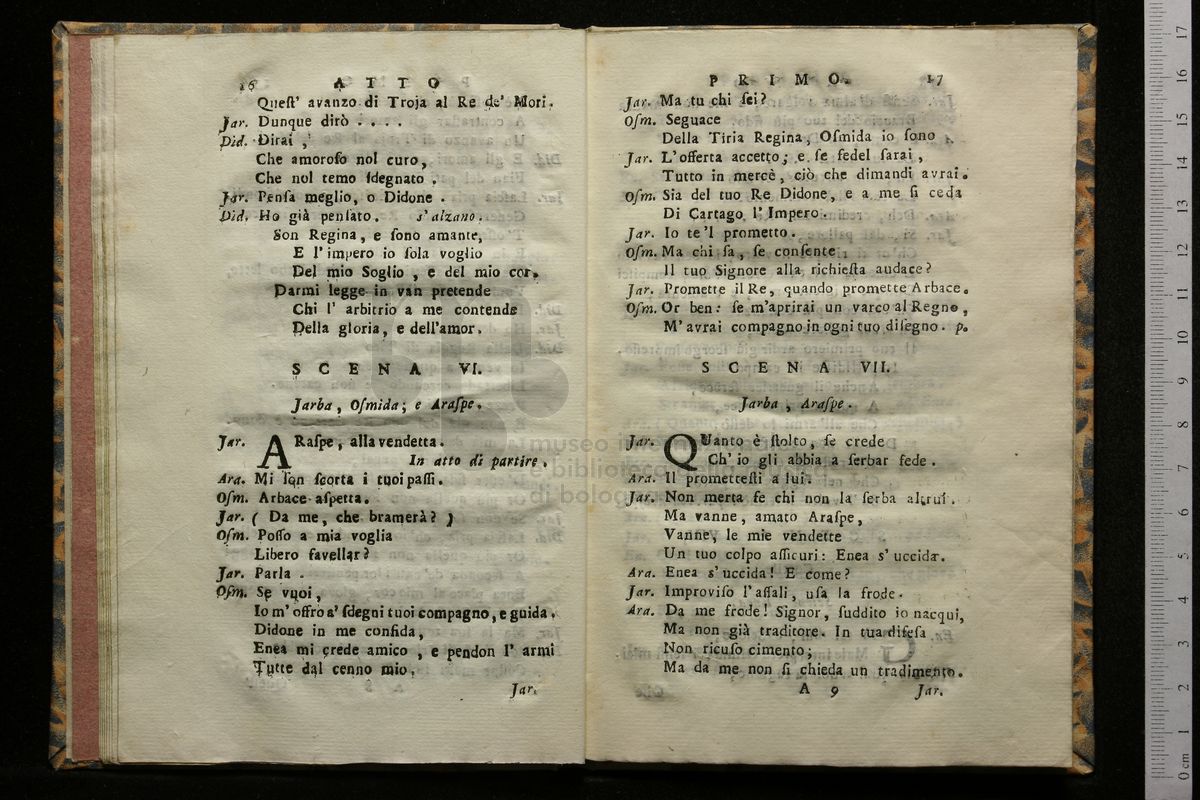 16 ATTO
Quest' avanzo di Troja al Re de' Mori.
Jar. Dunque dirò . . . .
Did. Dirai,
Che amoroso nol curo,
Che nol temo sdegnato.
Jar. Pensa meglio, o Didone.
Did. Ho già pensato. s'alzano.
Son Regina, e sono amante,
E l'impero io sola voglio
Del mio Soglio, e del mio cor.
Darmi legge in van pretende
Chi l' arbitrio a me contende
Della gloria, e dell'amor.
SCENA VI.
Jarba, Osmida; e Araspe.
Jar. ARaspe, alla vendetta.
In atto di partire.
Ara. Mi son scorta i tuoi passi.
Osm. Arbace aspetta.
Jar. ( Da me, che bramerà? )
Osm. Posso a mia voglia
Libero favellar?
Jar. Parla.
Osm. Se vuoi,
Io m' offro a' sdegni tuoi compagno, e guida.
Didone in me confida,
Enea mi crede amico, e pendon l' armi
Tutte dal cenno mio.
Jar.
PRIMO. 17
Jar. Ma tu chi sei?
Osm. Seguace
Della Tiria Regina, Osmida io sono
Jar. L'offerta accetto; e se fedel sarai,
Tutto in mercè, ciò che dimandi avrai.
Osm. Sia del tuo Re Didone, e a me si ceda
Di Cartago l' Impero.
Jar. Io te 'l prometto.
Osm. Ma chi sa, se consente
Il tuo Signore alla richiesta audace?
Jar. Promette il Re, quando promette Arbace.
Osm. Or ben: se m'aprirai un varco al Regno,
M' avrai compagno in ogni tuo disegno. p.
SCENA VII.
Jarba, Araspe.
Jar. QUanto è stolto, se crede
Ch' io gli abbia a serbar fede.
Ara. Il promettesti a lui.
Jar. Non merta fe chi non la serba altrui.
Ma vanne, amato Araspe,
Vanne, le mie vendette
Un tuo colpo assicuri: Enea s' uccida.
Ara. Enea s' uccida! E come?
Jar. Improviso l' assali, usa la frode.
Ara. Da me frode! Signor, suddito io nacqui,
Ma non già traditore. In tua difesa
Non ricuso cimento;
Ma da me non si chieda un tradimento.
A 9 Jar.